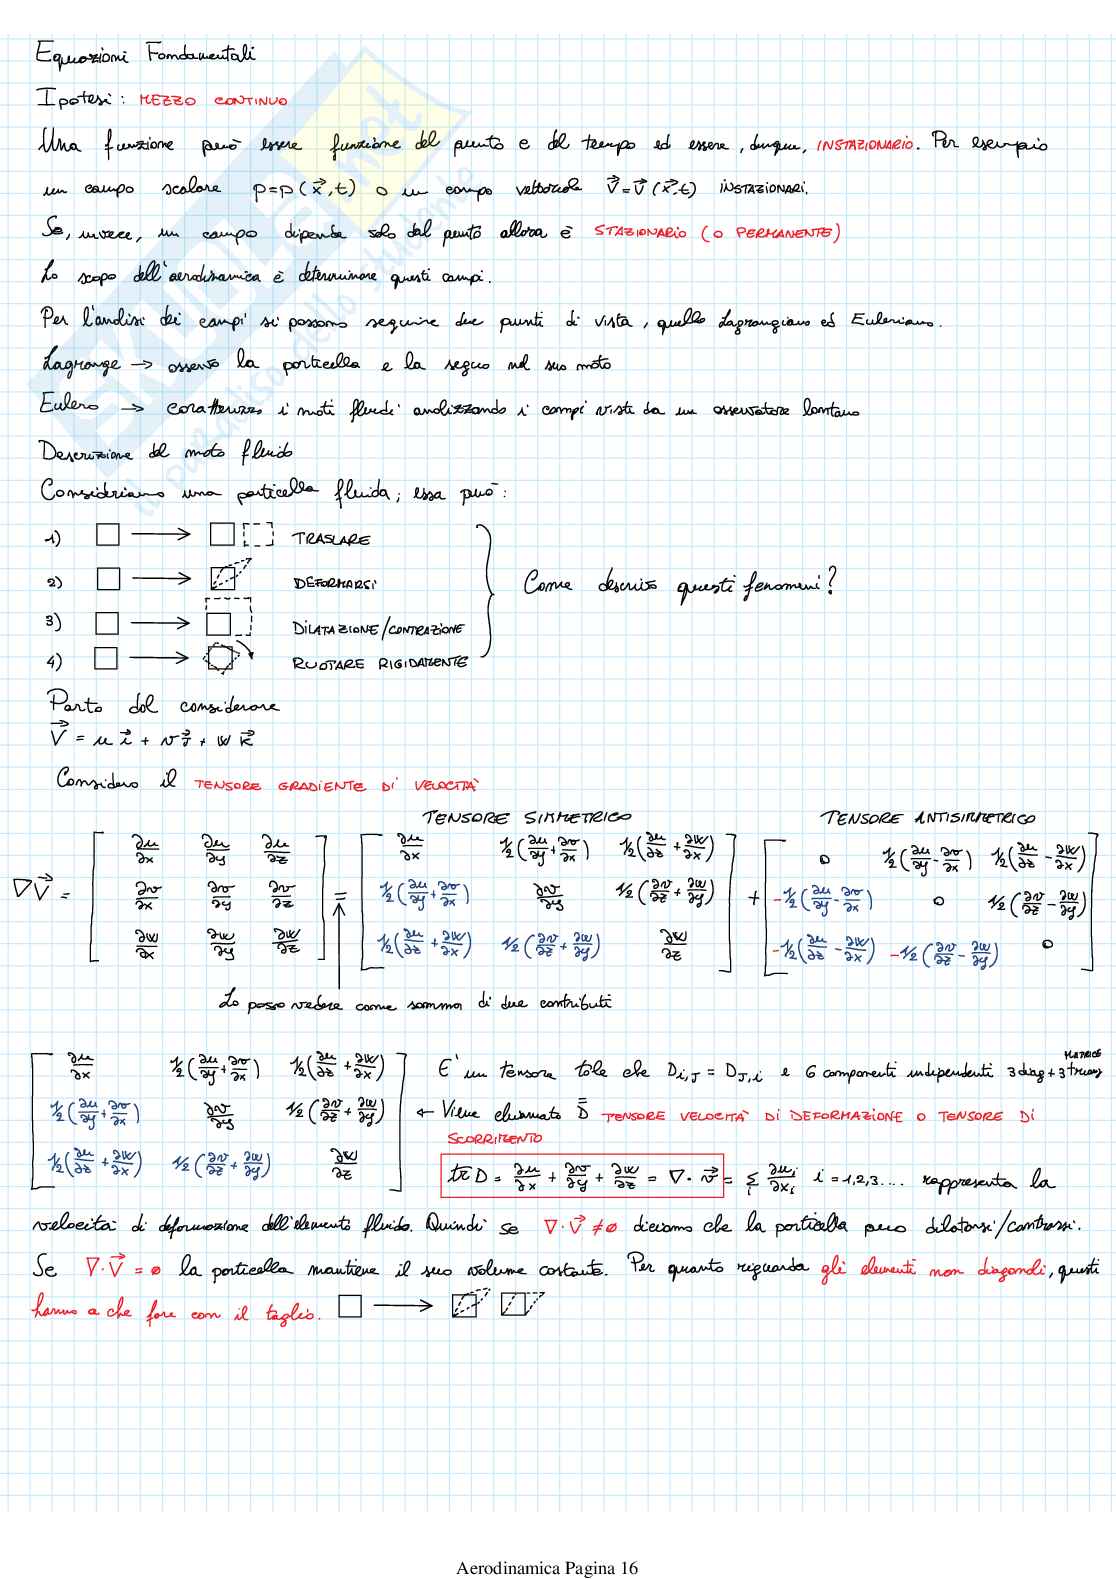 Equazioni Fondamentali
Ipotesi: MEZZO CONTINUO
Una funzione può essere funzione del punto e del tempo ed essere, dunque, INSTAZIONARIO. Per esempio
un campo scalare p=p(x⃗,t) o un campo vettoriale V⃗=V⃗(x⃗,t) INSTAZIONARI.
Se, invece, un campo dipende solo dal punto allora è STAZIONARIO (O PERMANENTE)
Lo scopo dell'aerodinamica è determinare questi campi.
Per l'analisi dei campi si possono seguire due punti di vista, quello Lagrangiano ed Euleriano.
Lagrange → osservo la particella e la seguo nel suo moto
Eulero → caratterizzo i moti fluidi analizzando i campi visti da un osservatore lontano
Descrizione del moto fluido
Consideriamo una particella fluida; essa può:
1) → TRASLARE
2) → DEFORMARSI
Come descrivo questi fenomeni?
3) → DILATAZIONE/CONTRAZIONE
4) → RUOTARE RIGIDAMENTE
Parto dal considerare
V⃗ = u i⃗ + v j⃗ + w k⃗
Considero il TENSORE GRADIENTE DI VELOCITÀ
TENSORE SIMMETRICO TENSORE ANTISIMMETRICO
∇V⃗ = [ ∂u/∂x ∂u/∂y ∂u/∂z ] = [ ∂u/∂x 1/2(∂u/∂y+∂v/∂x) 1/2(∂u/∂z+∂w/∂x) ] + [ 0 1/2(∂u/∂y-∂v/∂x) 1/2(∂u/∂z-∂w/∂x) ]
[ ∂v/∂x ∂v/∂y ∂v/∂z ] [ 1/2(∂u/∂y+∂v/∂x) ∂v/∂y 1/2(∂v/∂z+∂w/∂y) ] [ -1/2(∂u/∂y-∂v/∂x) 0 1/2(∂v/∂z-∂w/∂y) ]
[ ∂w/∂x ∂w/∂y ∂w/∂z ] [ 1/2(∂u/∂z+∂w/∂x) 1/2(∂v/∂z+∂w/∂y) ∂w/∂z ] [ -1/2(∂u/∂z-∂w/∂x) -1/2(∂v/∂z-∂w/∂y) 0 ]
Lo posso vedere come somma di due contributi
[ ∂u/∂x 1/2(∂u/∂y+∂v/∂x) 1/2(∂u/∂z+∂w/∂x) ] E' un tensore tale che D i,J = D J,i e 6 componenti indipendenti 3 diag + 3 triang MATRICE
[ 1/2(∂u/∂y+∂v/∂x) ∂v/∂y 1/2(∂v/∂z+∂w/∂y) ] ← Viene chiamato D̿ TENSORE VELOCITÀ DI DEFORMAZIONE O TENSORE DI
SCORRIMENTO
[ 1/2(∂u/∂z+∂w/∂x) 1/2(∂v/∂z+∂w/∂y) ∂w/∂z ] tr D = ∂u/∂x + ∂v/∂y + ∂w/∂z = ∇·v⃗ = Σi ∂ui/∂xi i=1,2,3.... rappresenta la
velocità di deformazione dell'elemento fluido. Quindi se ∇·V⃗ ≠ 0 diciamo che la particella può dilatarsi/contrarsi.
Se ∇·V⃗ = 0 la particella mantiene il suo volume costante. Per quanto riguarda gli elementi non diagonali, questi
hanno a che fare con il taglio. →
SKUOLA.net
il paradiso dello studente
Aerodinamica Pagina 16